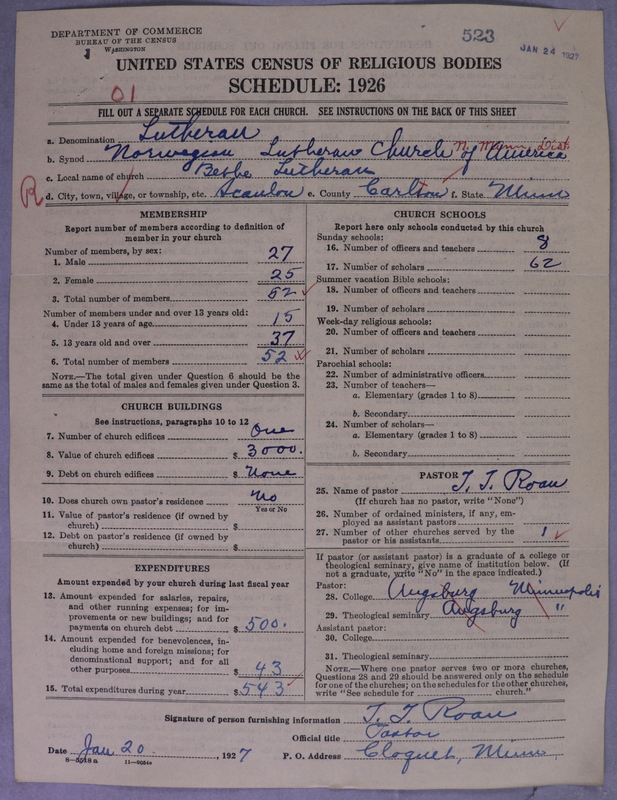 DEPARTMENT OF COMMERCE
BUREAU OF THE CENSUS
WASHINGTON
523
JAN 24 1927
UNITED STATES CENSUS OF RELIGIOUS BODIES
SCHEDULE: 1926
01
FILL OUT A SEPARATE SCHEDULE FOR EACH CHURCH. SEE INSTRUCTIONS ON THE BACK OF THIS SHEET
a. Denomination Lutheran
b. Synod Norwegian Lutheran Church of America N. Minn Dist.
c. Local name of church Bethe Lutheran
R d. City, town, village, or township, etc. Scanlon e. County Carlton f. State Minn
MEMBERSHIP
Report number of members according to definition of
member in your church
Number of members, by sex:
1. Male 27
2. Female 25
3. Total number of members 52
Number of members under and over 13 years old:
4. Under 13 years of age 15
5. 13 years old and over 37
6. Total number of members 52
NOTE.—The total given under Question 6 should be the
same as the total of males and females given under Question 3.
CHURCH BUILDINGS
See instructions, paragraphs 10 to 12
7. Number of church edifices One
8. Value of church edifices $ 3000.
9. Debt on church edifices $ None
10. Does church own pastor's residence No
Yes or No
11. Value of pastor's residence (if owned by
church) $
12. Debt on pastor's residence (if owned by
church) $
EXPENDITURES
Amount expended by your church during last fiscal year
13. Amount expended for salaries, repairs,
and other running expenses; for im-
provements or new buildings; and for
payments on church debt $ 500.
14. Amount expended for benevolences, in-
cluding home and foreign missions; for
denominational support; and for all
other purposes $ 43
15. Total expenditures during year $ 543
CHURCH SCHOOLS
Report here only schools conducted by this church
Sunday schools:
16. Number of officers and teachers 8
17. Number of scholars 62
Summer vacation Bible schools:
18. Number of officers and teachers
19. Number of scholars
Week-day religious schools:
20. Number of officers and teachers
21. Number of scholars
Parochial schools:
22. Number of administrative officers
23. Number of teachers—
a. Elementary (grades 1 to 8)
b. Secondary
24. Number of scholars—
a. Elementary (grades 1 to 8)
b. Secondary
PASTOR
25. Name of pastor T. T. Roan
(If church has no pastor, write "None")
26. Number of ordained ministers, if any, em-
ployed as assistant pastors
27. Number of other churches served by the
pastor or his assistants 1
If pastor (or assistant pastor) is a graduate of a college or
theological seminary, give name of institution below. (If
not a graduate, write "No" in the space indicated.)
Pastor:
28. College Augsburg Minneapolis
29. Theological seminary Augsburg "
Assistant pastor:
30. College
31. Theological seminary
NOTE.—Where one pastor serves two or more churches,
Questions 28 and 29 should be answered only on the schedule
for one of the churches; on the schedules for the other churches,
write "See schedule for church."
Signature of person furnishing information T. T. Roan
Official title Pastor
Date Jan 20, 1927 P. O. Address Cloquet, Minn.
8—5518 a 11—9054